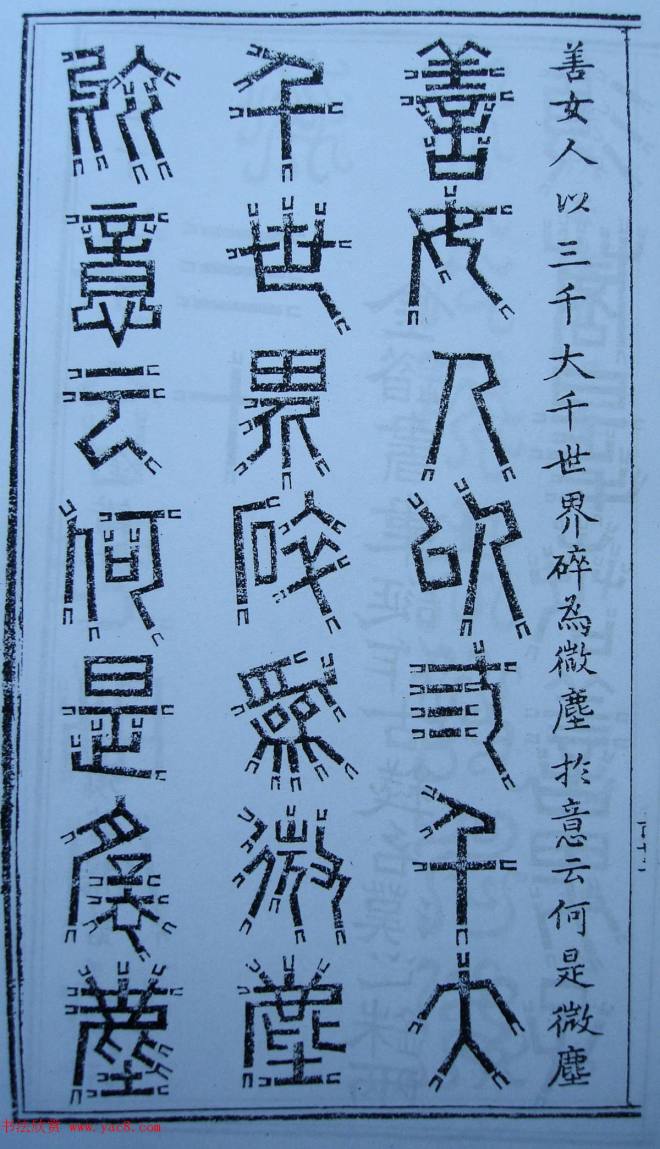 善女人以三千大千世界碎為微塵於意云何是微塵
善女人以三千大
千世界碎為微塵
於意云何是微塵
书法欣赏 www.yac8.com